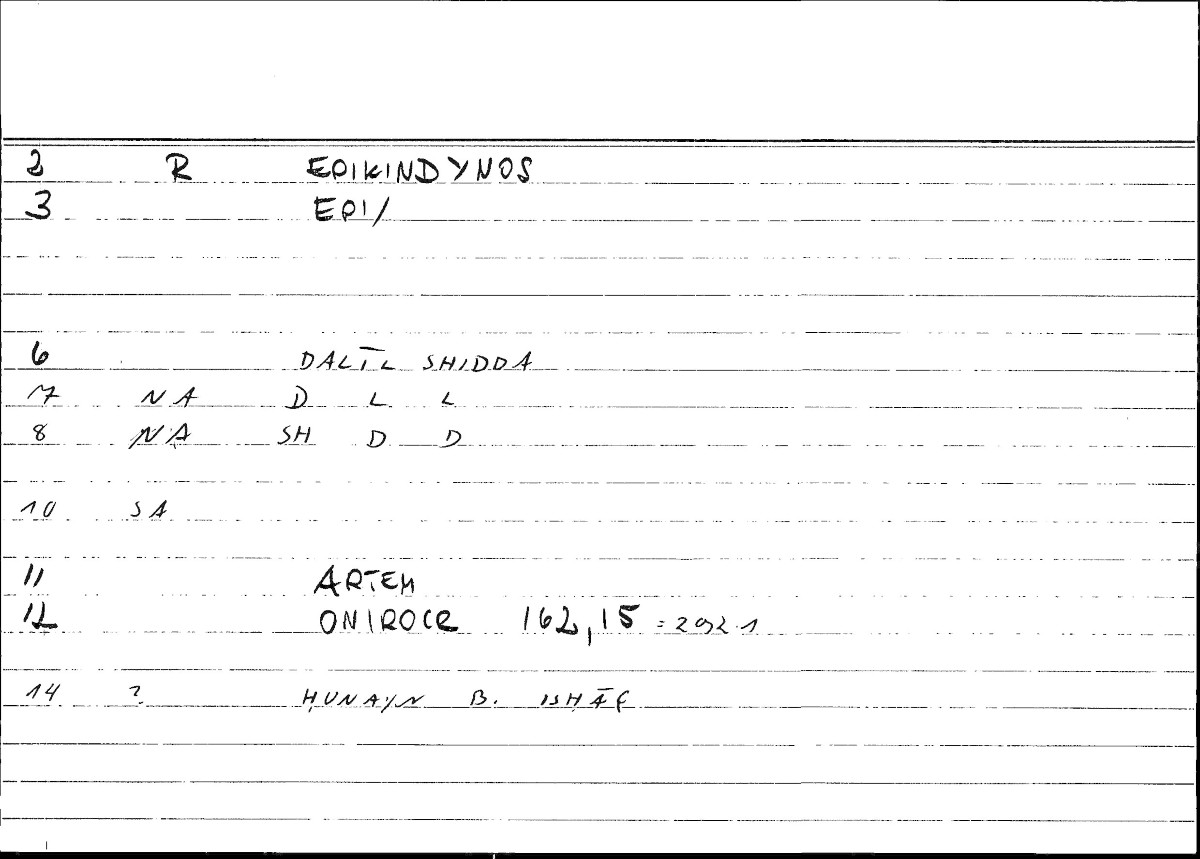 2 R EPIKINDYNOS
3 EPI/
6 DALĪL SHIDDA
7 NA D L L
8 NA SH D D
10 SA
11 ARTEM
12 ONIROCR 162,15 = 292 1
14 ? ḤUNAYN B. ISḤĀQ